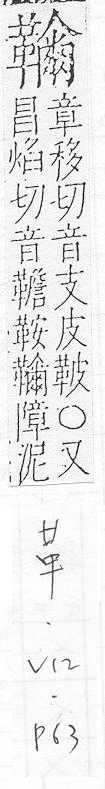 章移切音支皮鞁〇又
昌焰切音韂鞍障泥
革
·
V12
-
P63